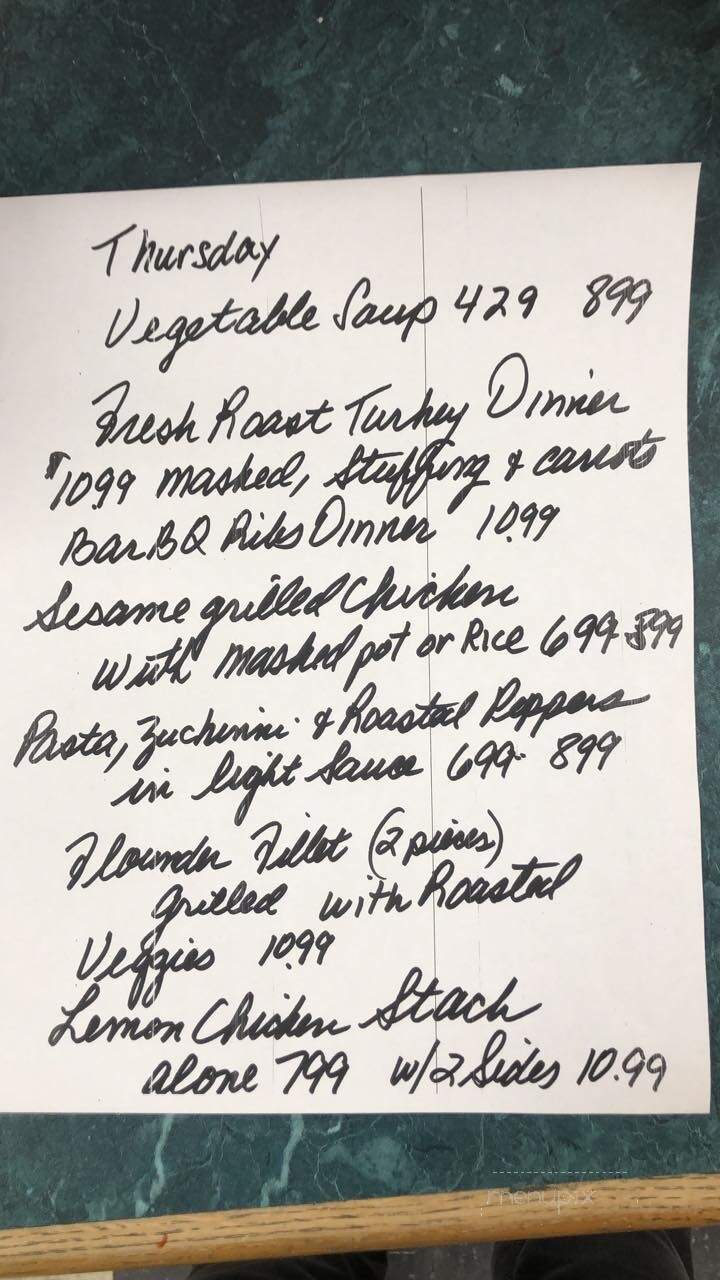 Thursday
Vegetable Soup 429 899
Fresh Roast Turkey Dinner
$1099 mashed, Stuffing & carrots
Bar BQ Ribs Dinner 10.99
Sesame grilled Chicken
with mashed pot or Rice 699
Pasta, Zuchinni & Roasted Peppers
in light Sauce 699 899
Flounder Fillet (2 pieces)
grilled with Roasted
Veggies 10.99
Lemon Chicken Stack
alone 799 w/2 Sides 10.99
menupix